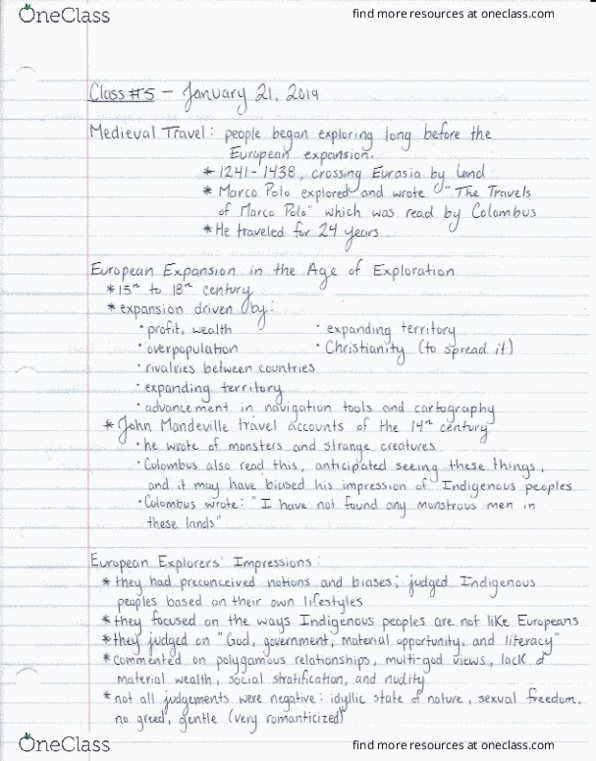 OneClass find more resources at oneclass.com
Class #5 - January 21, 2019
Medieval Travel: people began exploring long before the
European expansion.
* 1241-1438, crossing Eurasia by land
* Marco Polo explored and wrote "The Travels
of Marco Polo" which was read by Colombus
* He traveled for 24 years
European Expansion in the Age of Exploration
* 15th to 18th century
* expansion driven by:
• profit, wealth • expanding territory
• overpopulation • Christianity (to spread it)
• rivalries between countries
• expanding territory
• advancement in navigation tools and cartography
* John Mandeville travel accounts of the 14th century
• he wrote of monsters and strange creatures
• Colombus also read this, anticipated seeing these things,
and it may have biased his impression of Indigenous peoples
• Colombus wrote: "I have not found any monstrous men in
these lands"
European Explorers' Impressions:
* they had preconceived notions and biases; judged Indigenous
peoples based on their own lifestyles
* they focused on the ways Indigenous peoples are not like Europeans
* they judged on "God, government, material opportunity, and literacy"
* commented on polygamous relationships, multi-god views, lack of
material wealth, social stratification, and nudity
* not all judgements were negative: idyllic state of nature, sexual freedom,
no greed, gentle (very romanticized)
OneClass find more resources at oneclass.com